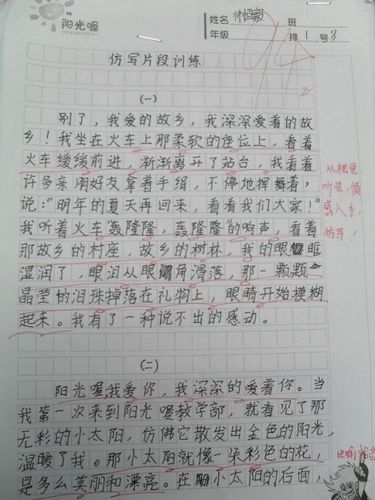 阳光喔
姓名 班
年级 排1号3
仿写片段训练
(一)
别了，我爱的故乡，我深深爱着的故
乡！我坐在火车上那柔软的座位上，看着
火车缓缓前进，渐渐离开了站台，我看着
许多亲朋好友拿着手绢，不停地挥舞着，
说：“明年的夏天再回来，看看我们大家！”
我听着火车轰隆隆，轰隆隆的响声，看着
那故乡的村座，故乡的树林，我的眼眶
湿润了，眼泪从眼角滑落，那一颗颗
晶莹的泪珠掉落在礼物上，眼睛开始模糊
起来。我有了一种说不出的感动。
从视觉、
听觉、情
感入手，
仿写！
(二)
阳光喔我爱你，我深深的爱着你。当
我第一次来到阳光喔教学部，就看见了那
无彩的小太阳，仿佛它散发出金色的阳光，
温暖了我。那小太阳就像一朵彩色的花，
是多么美丽和漂亮。在小太阳的右面，